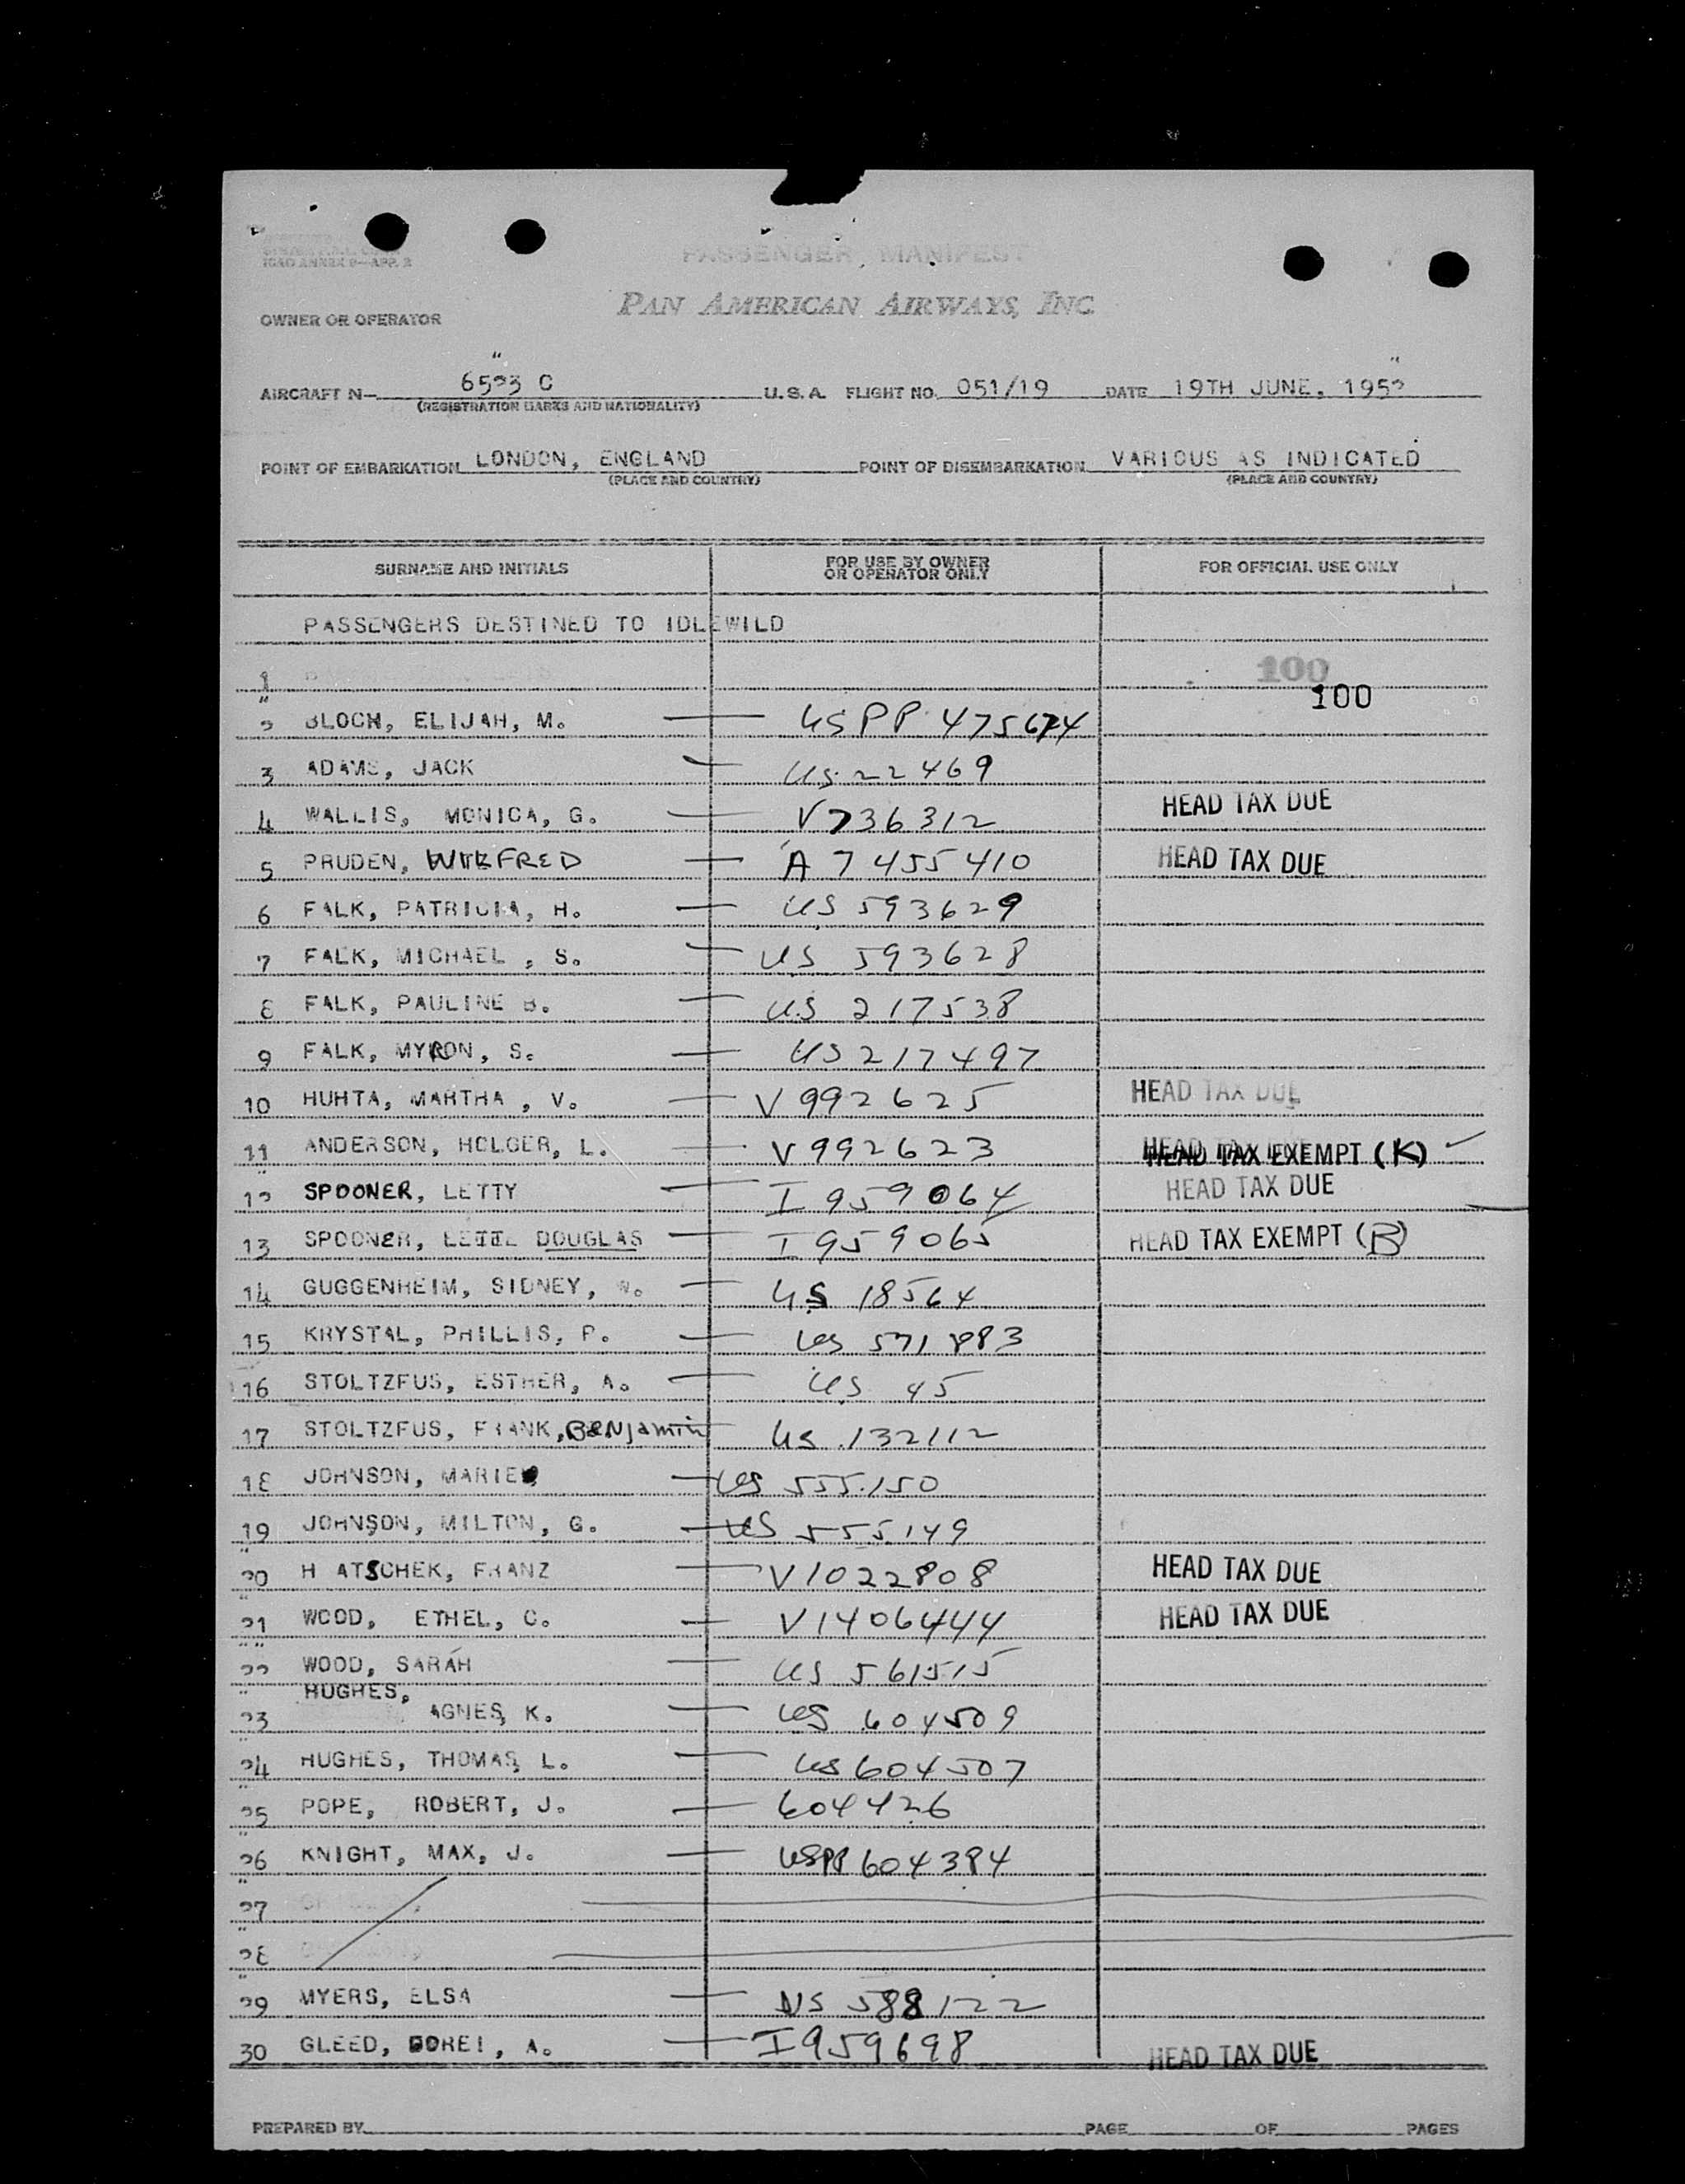 ICAO ANNEX 9—APP. 2
PASSENGER MANIFEST
OWNER OR OPERATOR PAN AMERICAN AIRWAYS, INC.
AIRCRAFT N— C U.S.A. FLIGHT NO. 051/19 DATE 19TH JUNE, 1952
(REGISTRATION MARKS AND NATIONALITY)
POINT OF EMBARKATION LONDON, ENGLAND POINT OF DISEMBARKATION VARIOUS AS INDICATED
(PLACE AND COUNTRY) (PLACE AND COUNTRY)
SURNAME AND INITIALS FOR USE BY OWNER OR OPERATOR ONLY FOR OFFICIAL USE ONLY
PASSENGERS DESTINED TO IDLEWILD
1 100
100
2 BLOCH, ELIJAH, M. — US PP 475674
3 ADAMS, JACK — US 22469
4 WALLIS, MONICA, G. — V736312 HEAD TAX DUE
5 PRUDEN, WILFRED — A 7 455 410 HEAD TAX DUE
6 FALK, PATRICIA, H. — US 593629
7 FALK, MICHAEL, S. — US 593628
8 FALK, PAULINE B. — US 217538
9 FALK, MYRON, S. — US 217497
10 HUHTA, MARTHA, V. — V992625 HEAD TAX DUE
11 ANDERSON, HOLGER, L. — V992623 HEAD TAX EXEMPT (K)
12 SPOONER, LETTY — I 959064 HEAD TAX DUE
13 SPOONER, DOUGLAS — I 959065 HEAD TAX EXEMPT (B)
14 GUGGENHEIM, SIDNEY, W. — US 18564
15 KRYSTAL, PHILLIS, P. — US 571883
16 STOLTZFUS, ESTHER, A. — US 45
17 STOLTZFUS, FRANK, BENJamin US 132112
18 JOHNSON, MARIE — US 555150
19 JOHNSON, MILTON, G. — US 555149
20 H ATSCHEK, FRANZ — V1022808 HEAD TAX DUE
21 WOOD, ETHEL, C. — V1406444 HEAD TAX DUE
22 WOOD, SARAH — US 561515
HUGHES,
23 AGNES, K. — US 604509
24 HUGHES, THOMAS, L. — US 604507
25 POPE, ROBERT, J. — 604426
26 KNIGHT, MAX, J. — USPP 604384
27
28
29 MYERS, ELSA — 588122
30 GLEED, A. — I959698 HEAD TAX DUE
PREPARED BY PAGE OF PAGES